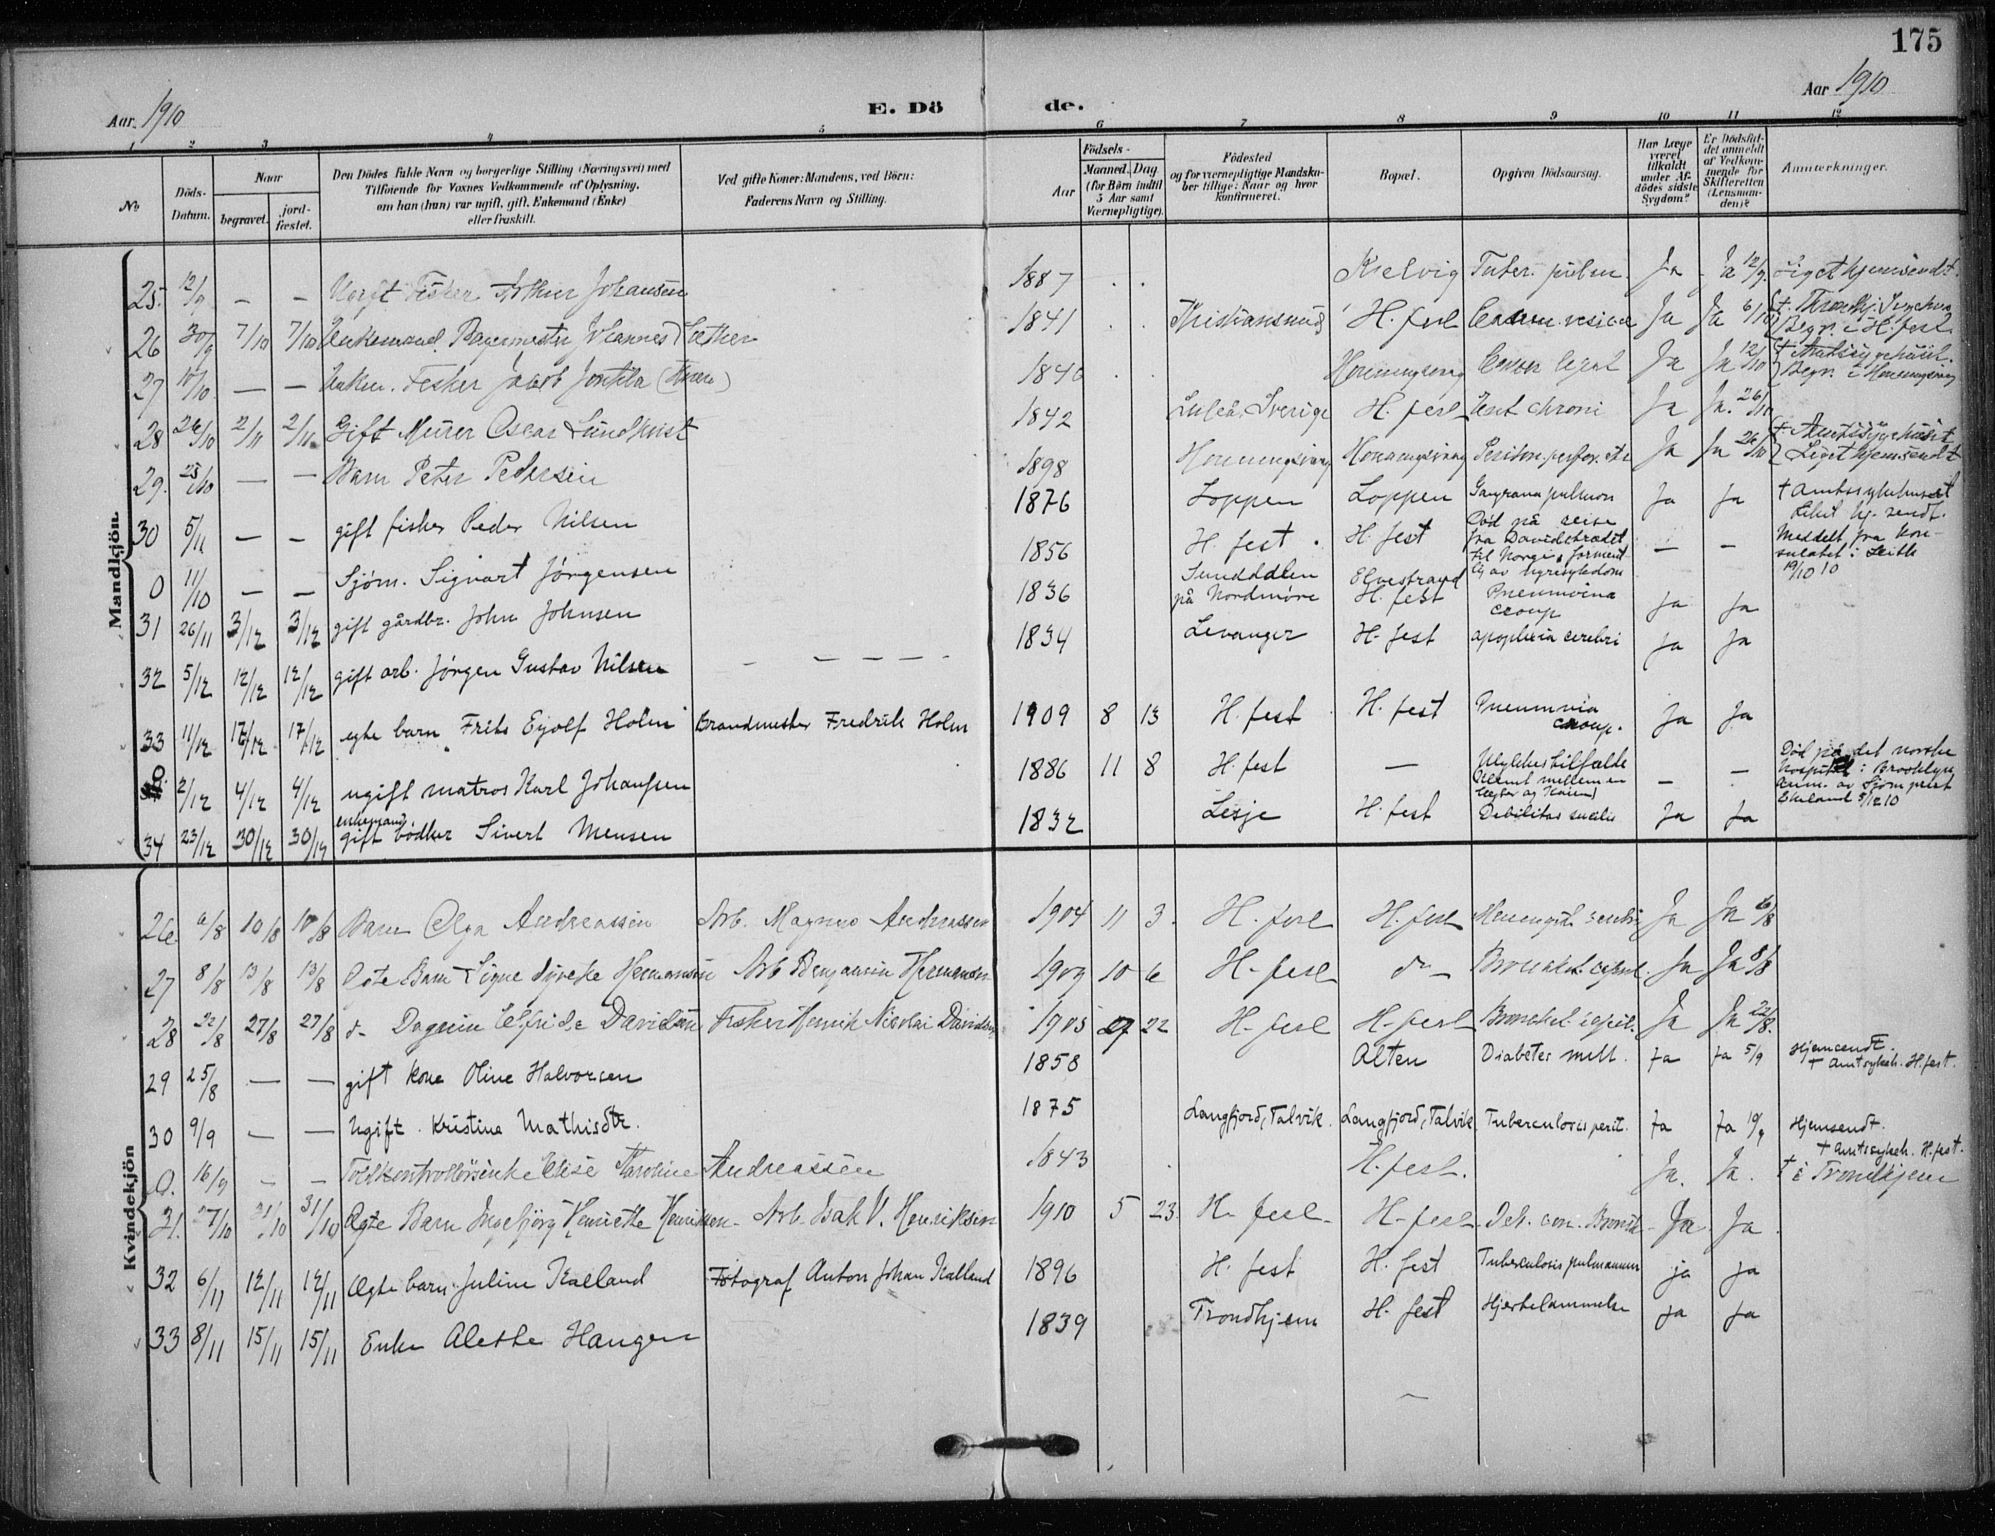 175
Aar 1910
E. Dö de.
Aar 1910
1 2 3 4 5 6 7 8 9 10 11 12
No
Döds-
Datum.
Naar
begravet.
jord-
fæstet.
Den Dödes fulde Navn og borgerlige Stilling (Næringsvei) med
Tilføiende for Voxnes Vedkommende af Oplysning,
om han (hun) var ugift, gift, Enkemand (Enke)
eller fraskilt.
Ved gifte Koner: Mandens, ved Børn:
Faderens Navn og Stilling.
Födsels-
Aar
Maaned. Dag
(for Børn indtil
5 Aar samt
Værnepligtige).
Födested
og for værnepligtige Mandska-
ber tillige: Naar og hvor
konfirmeret.
Bopæl.
Opgiven Dödsaarsag.
Har Læge
været
tilkaldt
under Af-
dödes sidste
Sygdom?
Er Dödsfal-
det anmeldt
af Vedkom-
mende for
Skifteretten
(Lensman-
den)?
Anmærkninger.
Mandkjön
25. 12/9 — — Ugift Fisker Arthur Johansen 1887 Kjelvig Tuber. pulm. Ja Ja 12/9. Liget hjemsendt.
26 30/9 7/10 7/10 Enkemand Johannes 1841 Kristiansund H. fest Cancer vesicae Ja Ja 6/10 Begr. i H. fest
27 10/10 — — Enkem. Fisker Jacob 1846 Honningsvaag Cancer Ja Ja 12/10 † Amtssygehuset. Begr. i Honningsvaag
28 26/10 2/11 2/11 Gift Murer Oscar Lundkvist 1842 Luleå, Sverige H. fest chroni Ja Ja. 26/10
29. 25/10 — — Barn Peter Pedersen 1898 Honningsvaag Honningsvaag Ja Ja 26/10 † Amtssygehuset Liget hjemsendt
30 5/11 — — gift fisker Peder Nilsen 1876 Loppen Loppen Gangræna pulmon Ja Ja † Amtssykehuset Liket hj. sendt.
0 11/10 — — Sjøm. Sigvart Jørgensen 1856 H. fest. H. fest Død på reise fra Davidstrædet til Norge, forment lig av nyresykdom — — Meddelt fra Kon- sulatet i Leith 19/10 10
31 26/11 3/12 3/12 gift gårdbr. John Johnsen 1836 Sunddalen på Nordmøre Elvestrand H. fest Pneumonia croup Ja Ja
32 5/12 12/12 12/12 gift arb. Jørgen Gustav Nilsen — — — — — 1834 Levanger H. fest apoplexia cerebri Ja Ja
33 11/12 17/12 17/12 egte barn Frits Eyolf Holm Brandmester Fredrik Holm 1909 8 13 H. fest H. fest Pneumonia croup. Ja Ja
0. 2/12 4/12 4/12 ugift matros Karl Johansen 1886 11 8 H. fest — Ulykkestilfælde (Klemt mellem en og Kaien) — — Død på det norske hospital i Brooklyn Anm. av Sjømprest Ekeland 5/12 10
34 23/12 30/12 30/12 enkemand gift bødker Sivert Mensen 1832 Lesje H. fest Debilitas senilis Ja Ja
Kvindekjön
26 6/8 10/8 10/8 Barn Olga Andreassen Arb. Magnus Andreassen 1904 11 3 H. fest H. fest Ja Ja 6/8
27 8/8 13/8 13/8 Ægte Barn Signe Dyveke Hermansen Arb Benjamin Hermansen 1909 10 6 H. fest do Bronchit. capil. Ja Ja 9/8
28 22/8 27/8 27/8 do Dagnin Elfride Davidsen Fisker Henrik Nicolai Davidsen 1905 9 22 H. fest H. fest Bronchit. capil. Ja Ja 22/8.
29 25/8 — — gift kone Oline Halvorsen 1858 Alten Diabetes mell. Ja Ja 5/9 Hjemsendt. † Amtsykeh. H. fest.
30 9/9 — — Ugift. Kristine Mathisdtr. 1875 Langfjord, Talvik Langfjord, Talvik Tuberculosis perit. Ja Ja 10/9 Hjemsendt. † Amtsykeh. H. fest.
0. 16/9 — — Toldkontrollørsenke Elise Karoline Andreassen 1843 H. fest. Ja. Ja. † i Trondhjem
31. 27/10 31/10 31/10 Ægte Barn Ingebjørg Henriette Henriksen Arb. Isak V. Henriksen 1910 5 23 H. fest H. fest. Deb. con. Bronch. Ja. Ja
32 6/11 12/11 12/11 Ægte barn Juline Kalland Fotograf Anton Johan Kalland 1896 H. fest H. fest Tuberculosis pulmonum ja ja
33 8/11 15/11 15/11 Enke Alethe Haugen 1839 Trondhjem H. fest Hjertelammelse ja ja